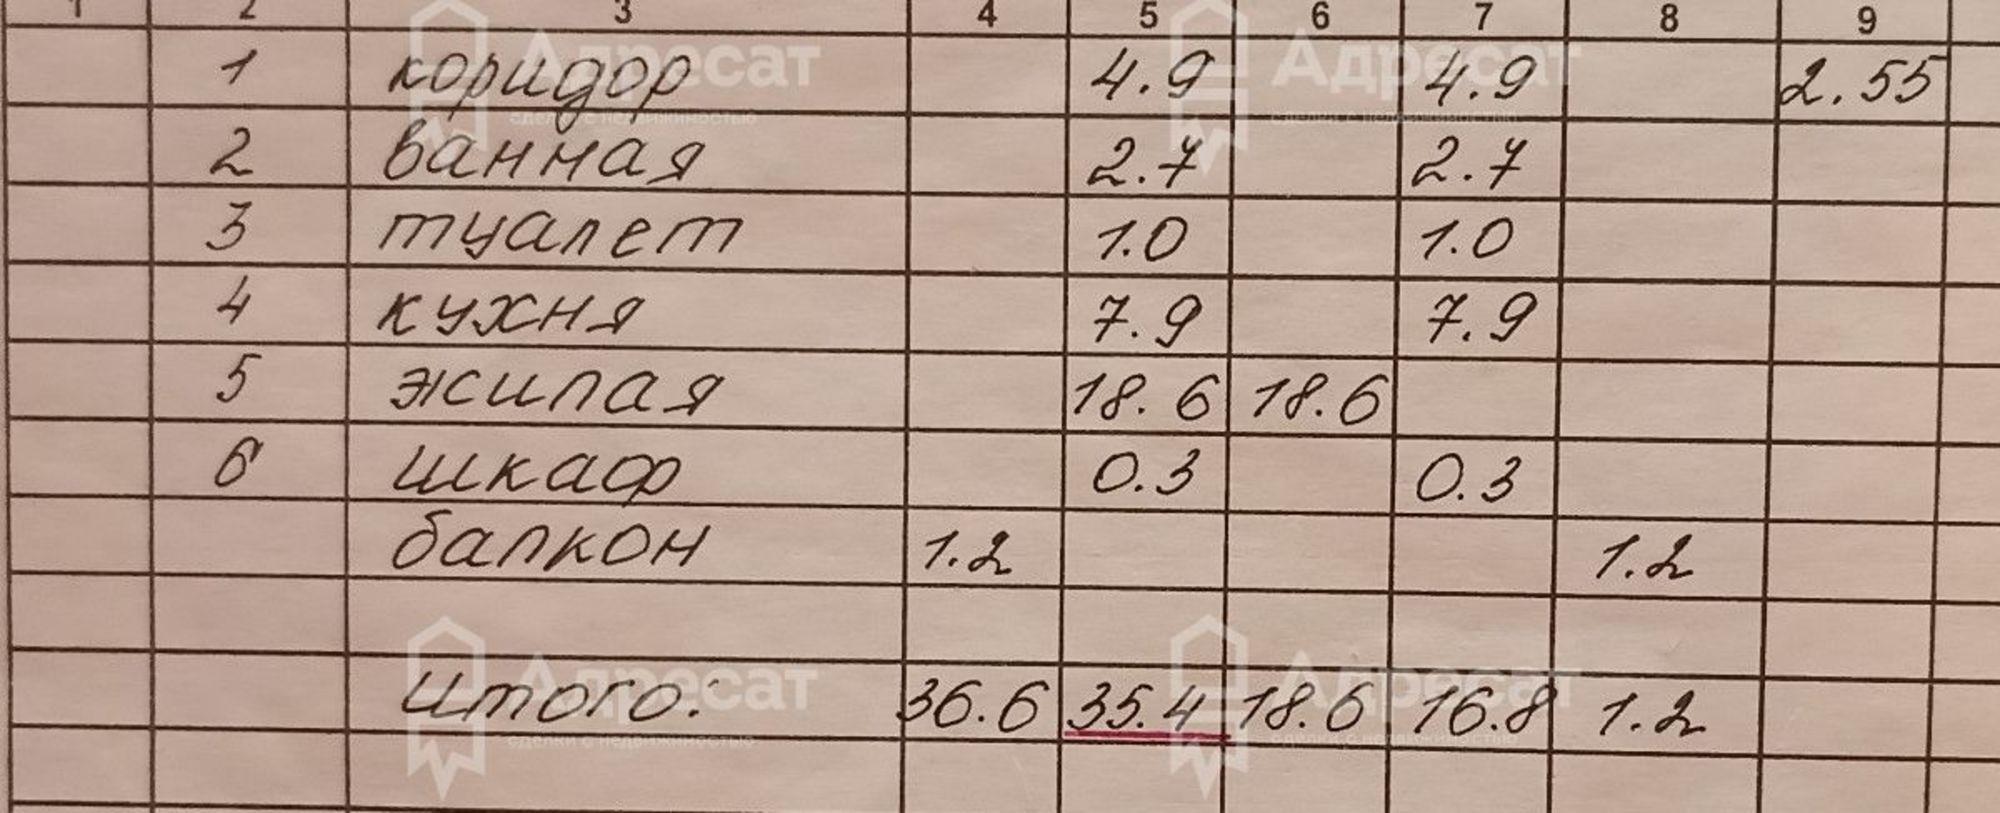 1 2 3 4 5 6 7 8 9
1 коридор 4.9 4.9 2.55
2 ванная 2.7 2.7
3 туалет 1.0 1.0
4 кухня 7.9 7.9
5 жилая 18.6 18.6
6 шкаф 0.3 0.3
балкон 1.2 1.2
Итого: 36.6 35.4 18.6 16.8 1.2
Адресат Адресат
сделки с недвижимостью сделки с недвижимостью
Адресат Адресат
сделки с недвижимостью сделки с недвижимостью